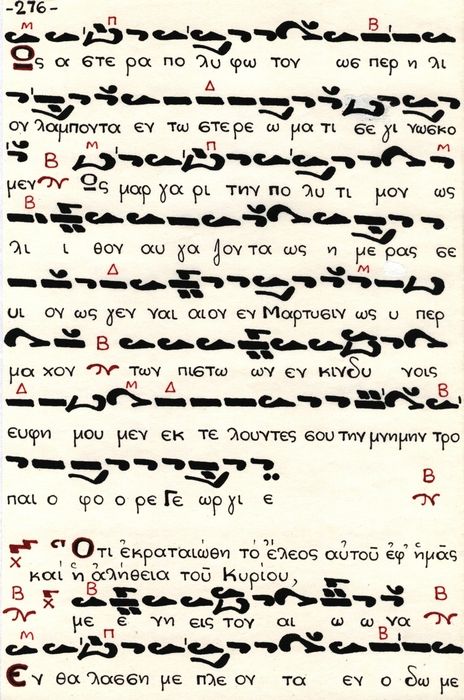 -276-
Μ Π Β
Ως α στε ρα πο λυ φω τον ωσ περ η λι
Δ
ον λαμποντα εν τω στερε ω μα τι σε γι νωσκο
Β Μ Π Μ
μεν Ως μαρ γα ρι την πο λυ τι μον ως
Β
λι ι θον αυ γα ζον τα ως η με ρας σε
Δ Μ
υι ον ως γεν ναι αιον εν Μαρτυσιν ως υ περ
Β
μα χον των πιστω ων εν κινδυ νοις
Δ Μ Δ Β
ευφη μου μεν εκ τε λουντες σου την μνημην τρο
παι ο φο ο ρε Γε ωρ γι ε
Β
Ὅτι ἐκραταιώθη τὸ ἔλεος αὐτοῦ ἐφ' ἡμᾶς
καί ἡ ἀλήθεια τοῦ Κυρίου,
Β Β Β
με ε νη εις τον αι ω ω να
Μ Π Β
Εν θα λασση με πλε ον τα εν ο δω με